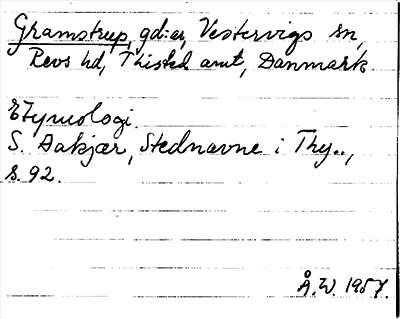 Gramstrup, gd:ar, Vestervigs sn,
Revs hd, Thisted amt, Danmark.
Etymologi.
S. Aakjær, Stednavne i Thy..,
s. 92.
Å.W. 1957.